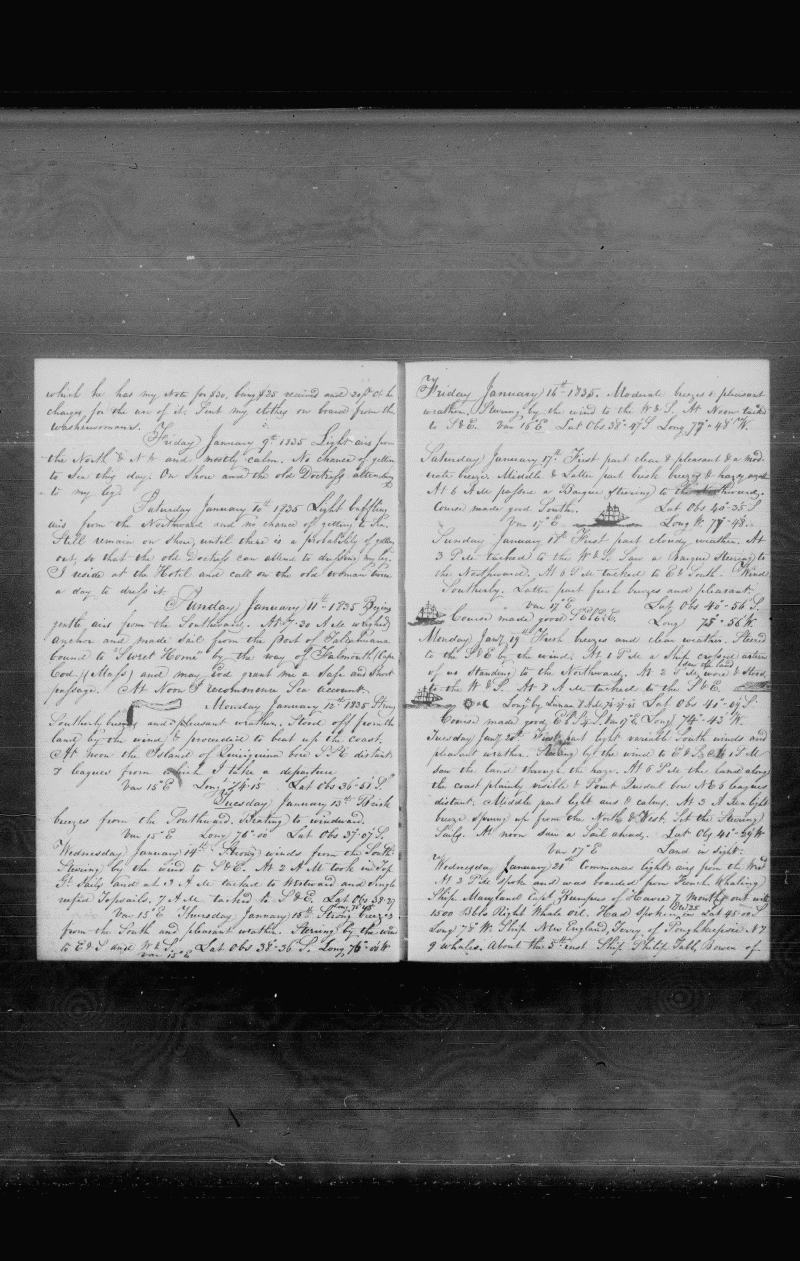 which he has my Note for $30, being $25 received and 20 pr Ct he
charges for the use of it. Sent my clothes on board from the
washerwomans.
Friday January 9th 1835 Light airs from
the North & N W and mostly calm. No chance of getting
to Sea this day. On Shore and the old Doctress attending
to my leg.
Saturday January 10th 1835 Light baffling
airs from the Northward and no chance of getting to Sea.
Still remain on Shore, until there is a probability of getting
out, so that the old Doctress can attend to dressing my leg.
I reside at the Hotel and call on the old woman
a day to dress it.
Sunday January 11th 1835 Begins
gentle airs from the Southward. At 7-30 A M weighed
anchor and made sail from the Port of Talcahuana
bound to "Sweet Home" by the way of Falmouth (Cape
Cod) (Mass) and may God grant me a Safe and Short
passage. At Noon I recommence Sea account.
Monday January 12th 1835 Strong
Southerly breezes and pleasant weather. Stood off from the
land by the wind & proceeded to beat up the coast.
At noon the Island of Quiriquina bore S S E distant
7 leagues from which I take a departure
Var 15°E Long 74°15 Lat Obs 36°51 S.
Tuesday January 13th Brisk
breezes from the Southward. Beating to windward.
Var 15°E Long 76°00 Lat Obs 37°07 S.
Wednesday January 14th Strong winds from the South.
Steering by the wind to S & E. At 2 A M took in Top
Gt Sails and at 3 A M tacked to Westward and Single
reefed Topsails. 7 A M tacked to S & E. Lat Obs 38°29
Var 15°E Thursday January 15th Strong breezes
from the South and pleasant weather. Steering by the wind
to E & S and W & S. Lat Obs 38°36 S. Long 76°06 W
Var 15°E
Friday January 16th 1835. Moderate breezes & pleasant
weather, Steering by the wind to the W & S. At Noon tacked
to S & E. Var 16°E Lat Obs 38°47 S Long 77°48 W.
Saturday January 17th First part clear & pleasant & a mod-
erate breeze. Middle & Latter part brisk breezes & hazy
At 6 A M passed a Barque steering to the Northward.
Course made good South. Lat Obs 40°35 S
Var 17°E Long W. 77°48.
Sunday January 18th First part cloudy weather. At
3 P M tacked to the W & S. Saw a Barque Steering to
the Northward. At 6 P M tacked to E & South. Wind
Southerly. Latter part fresh breezes and pleasant.
Var 17°E Lat Obs 40°56 S.
Course made good S E b E ½ E. Long 75°56 W.
Monday Jany 19th Fresh breezes and clear weather. Steered
to the S & E by the wind. At 1 P M a Ship crossed astern
of us Standing to the Northward. At 2 P M saw the land wore & Stood
to the W & S. At 7 A M tacked to the S & E.
Long by Lunar Lat Obs 41°09 S.
Course made good E b S ½ S. Var 17°E Long 74°43 W.
Tuesday Jany 20th First part light variable South winds and
pleasant weather. Steering by the wind to E & S. At 1 P M
saw the land through the haze. At 6 P M the land along
the coast plainly visible & Point bore N E 6 leagues
distant. Middle part light airs & calms. At 3 A M a light
breeze sprung up from the North & West. Set the Steering
Sails. At noon saw a Sail ahead. Lat Obs 41°59 W
Var 17°E Land in sight.
Wednesday January 21st Commences light airs from the Wrd
At 3 P M spoke and was boarded from French Whaling
Ship Maryland Capt of Havre 7 months out with
1500 Bbls Right Whale oil. Had Spoken, in Lat 45°00 S
Long 78°W. Ship New England, Terry of Poughkeepsie N Y
9 whales. About the 5th inst Ship Philip Tabb, Bowen of